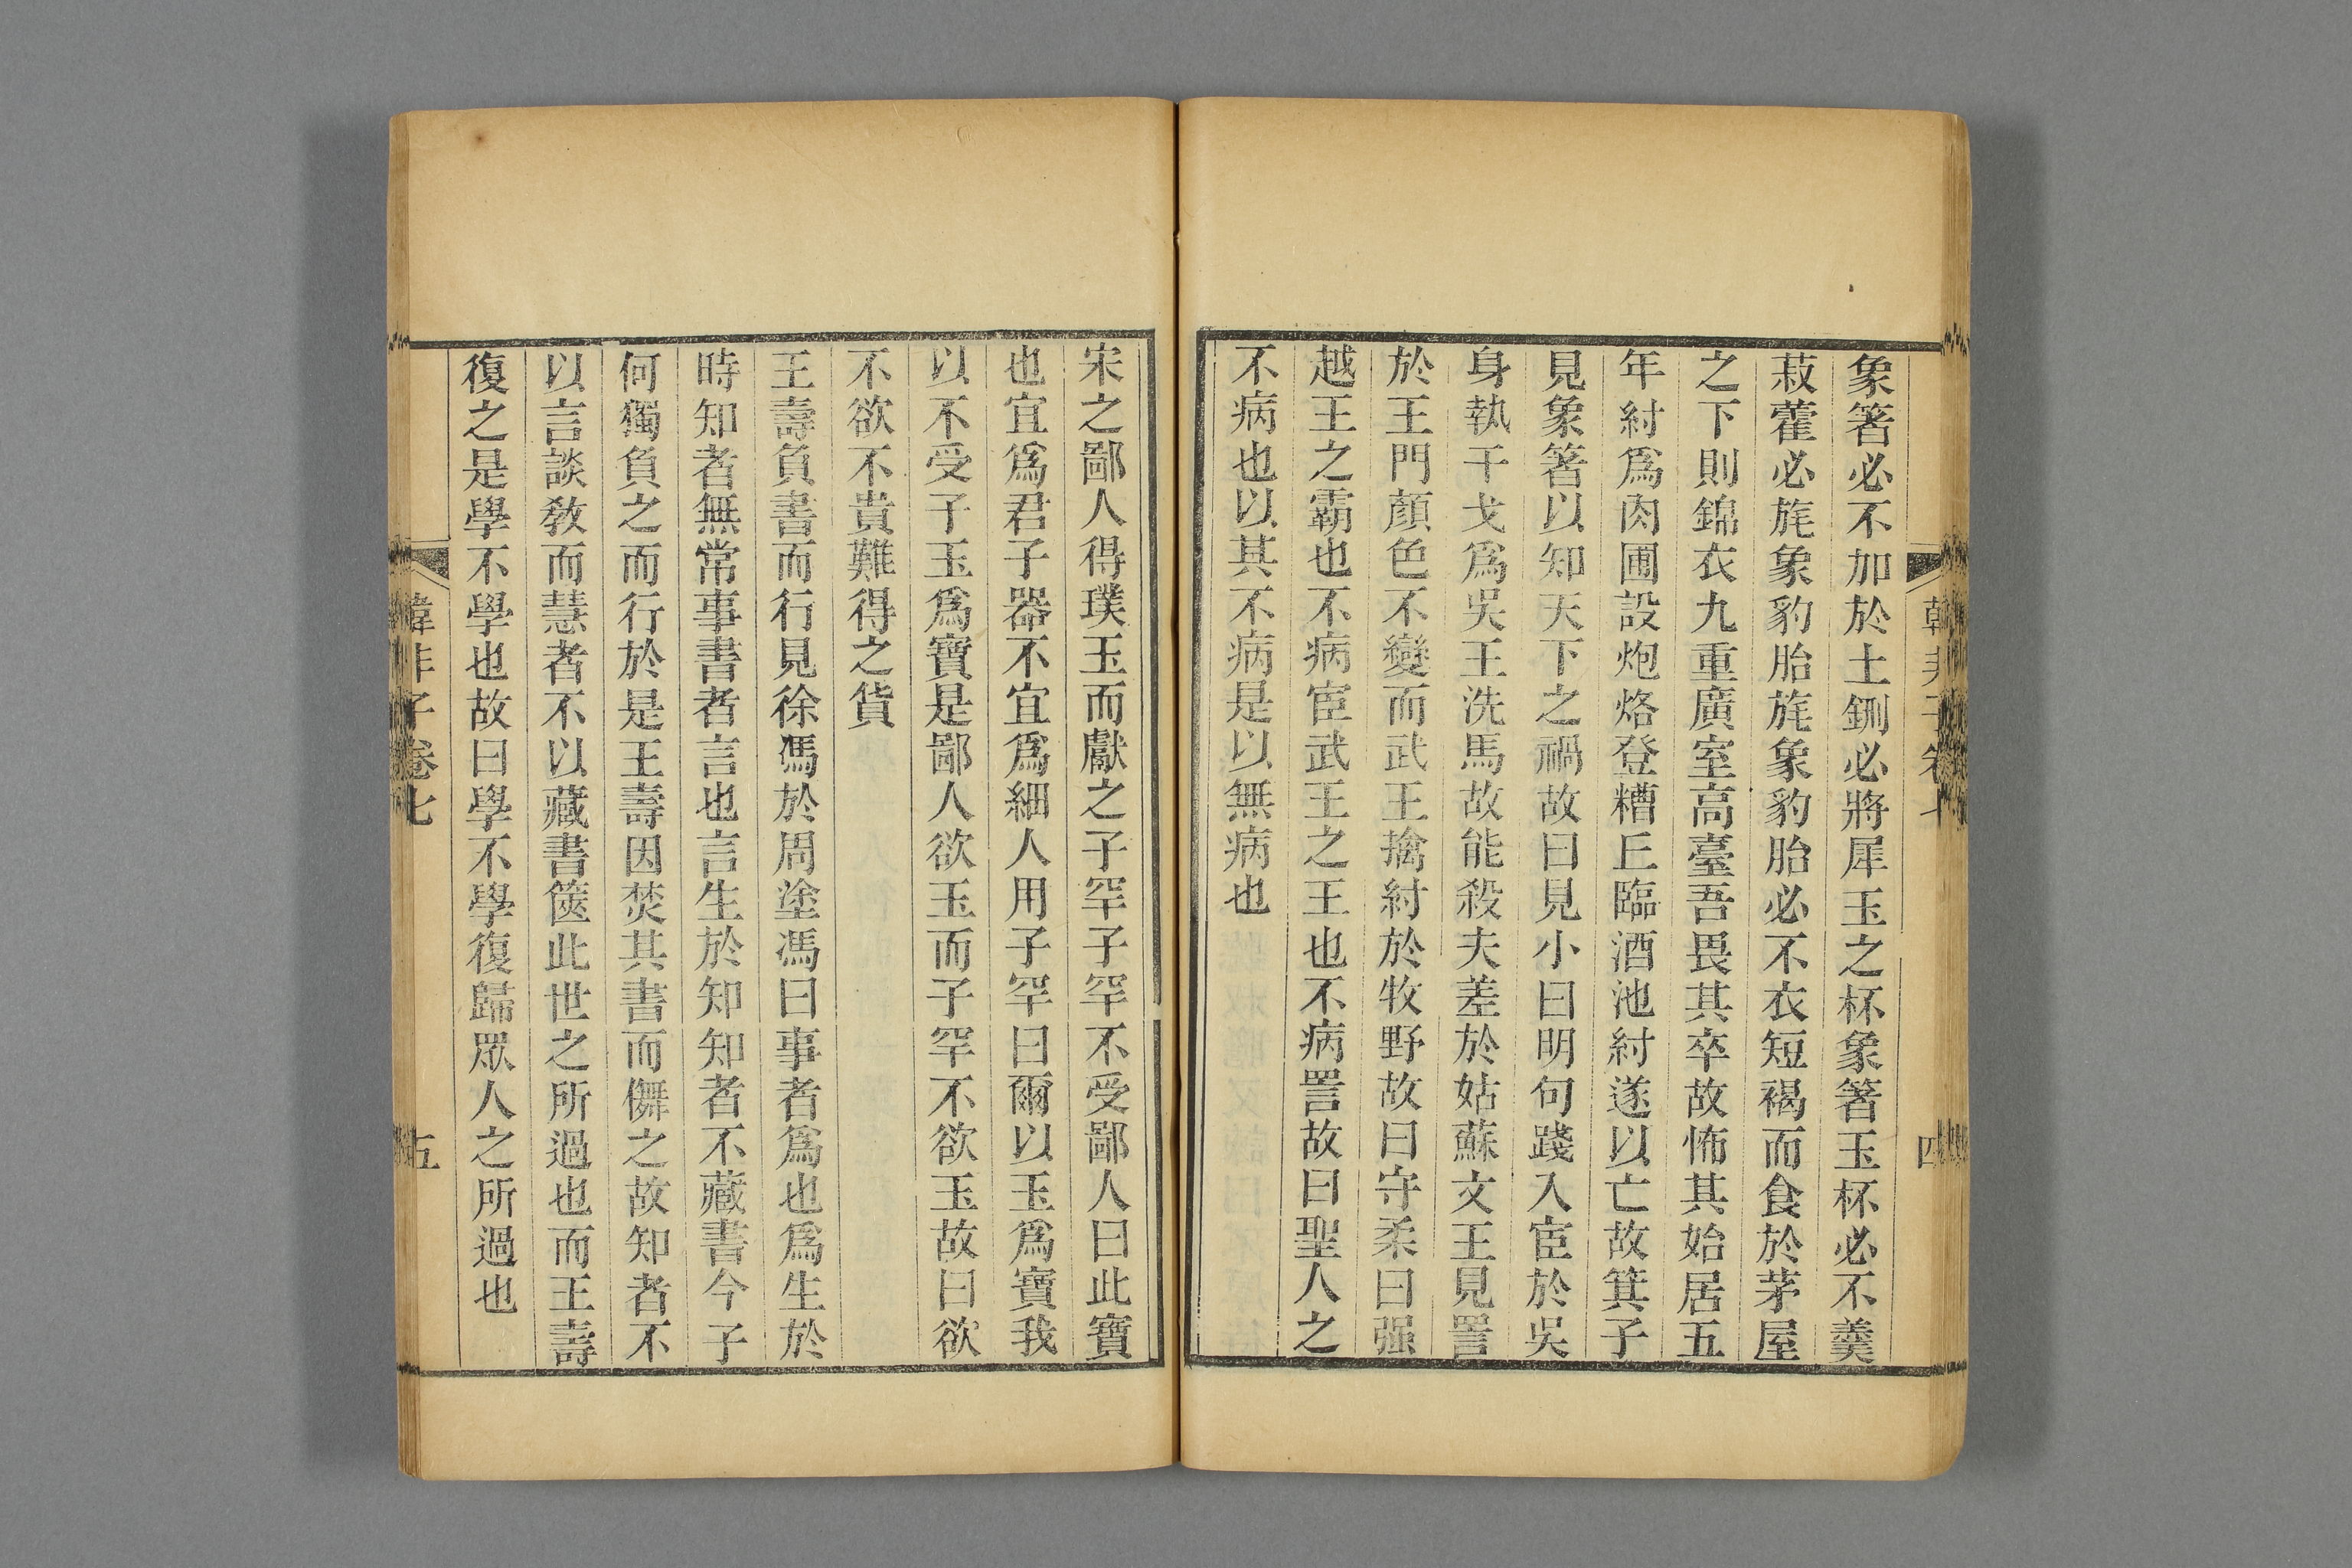 象箸必不加於土鉶必將犀玉之杯象箸玉杯必不羹
菽藿必旄象豹胎旄象豹胎必不衣短褐而食於茅屋
之下則錦衣九重廣室高臺吾畏其卒故怖其始居五
年紂爲肉圃設炮烙登糟丘臨酒池紂遂以亡故箕子
見象箸以知天下之禍故曰見小曰明句踐入宦於吳
身執干戈爲吳王洗馬故能殺夫差於姑蘇文王見詈
於王門顏色不變而武王擒紂於牧野故曰守柔曰强
越王之霸也不病宦武王之王也不病詈故曰聖人之
不病也以其不病是以無病也
宋之鄙人得璞玉而獻之子罕子罕不受鄙人曰此寶
也宜爲君子器不宜爲細人用子罕曰爾以玉爲寶我
以不受子玉爲寶是鄙人欲玉而子罕不欲玉故曰欲
不欲不貴難得之貨
王壽負書而行見徐馮於周塗馮曰事者爲也爲生於
時知者無常事書者言也言生於知知者不藏書今子
何獨負之而行於是王壽因焚其書而儛之故知者不
以言談教而慧者不以藏書篋此世之所過也而王壽
復之是學不學也故曰學不學復歸眾人之所過也
韓非子卷七
五